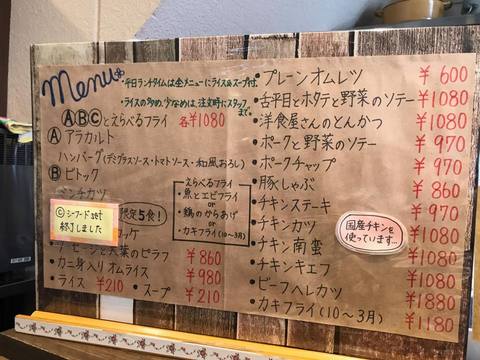 menu
・平日ランチタイムは全メニューにライス&スープ付。
・ライスの多め、少なめは、注文時にスタッフまで。
ⒶⒷⒸとえらべるフライ 各¥1080
Ⓐアラカルト
ハンバーグ(デミグラスソース・トマトソース・和風おろし)
Ⓑビトック
メンチカツ
Ⓒシーフードset
終了しました
限定5食!
ケ
ソーセージと大葉のピラフ ¥860
カニ身入りオムライス ¥980
・ライス ¥210 ・スープ ¥210
・えらべるフライ
・魚とエビフライ
or
・鶏のからあげ
or
・カキフライ(10〜3月)
・プレーンオムレツ ¥600
・舌平目とホタテと野菜のソテー ¥1080
・洋食屋さんのとんかつ ¥1080
・ポークと野菜のソテー ¥970
・ポークチャップ ¥970
・豚しゃぶ ¥860
・チキンステーキ ¥970
・チキンカツ ¥1080
・チキン南蛮 ¥1080
・チキンキエフ ¥1080
・ビーフヘレカツ ¥1880
・カキフライ(10〜3月) ¥1180
国産チキンを
使っています…